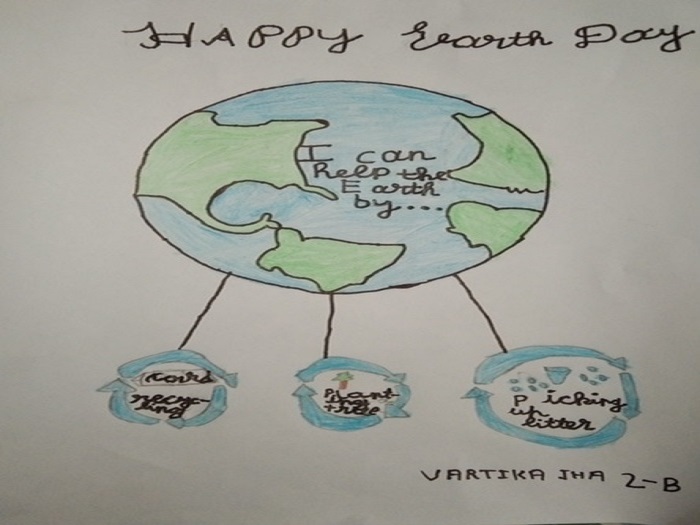 HAPPY Earth Day
I can
help the
Earth
by...
recyc-
ling
Plant
ing
tree
Piching
up
litter
VARTIKA JHA 2-B